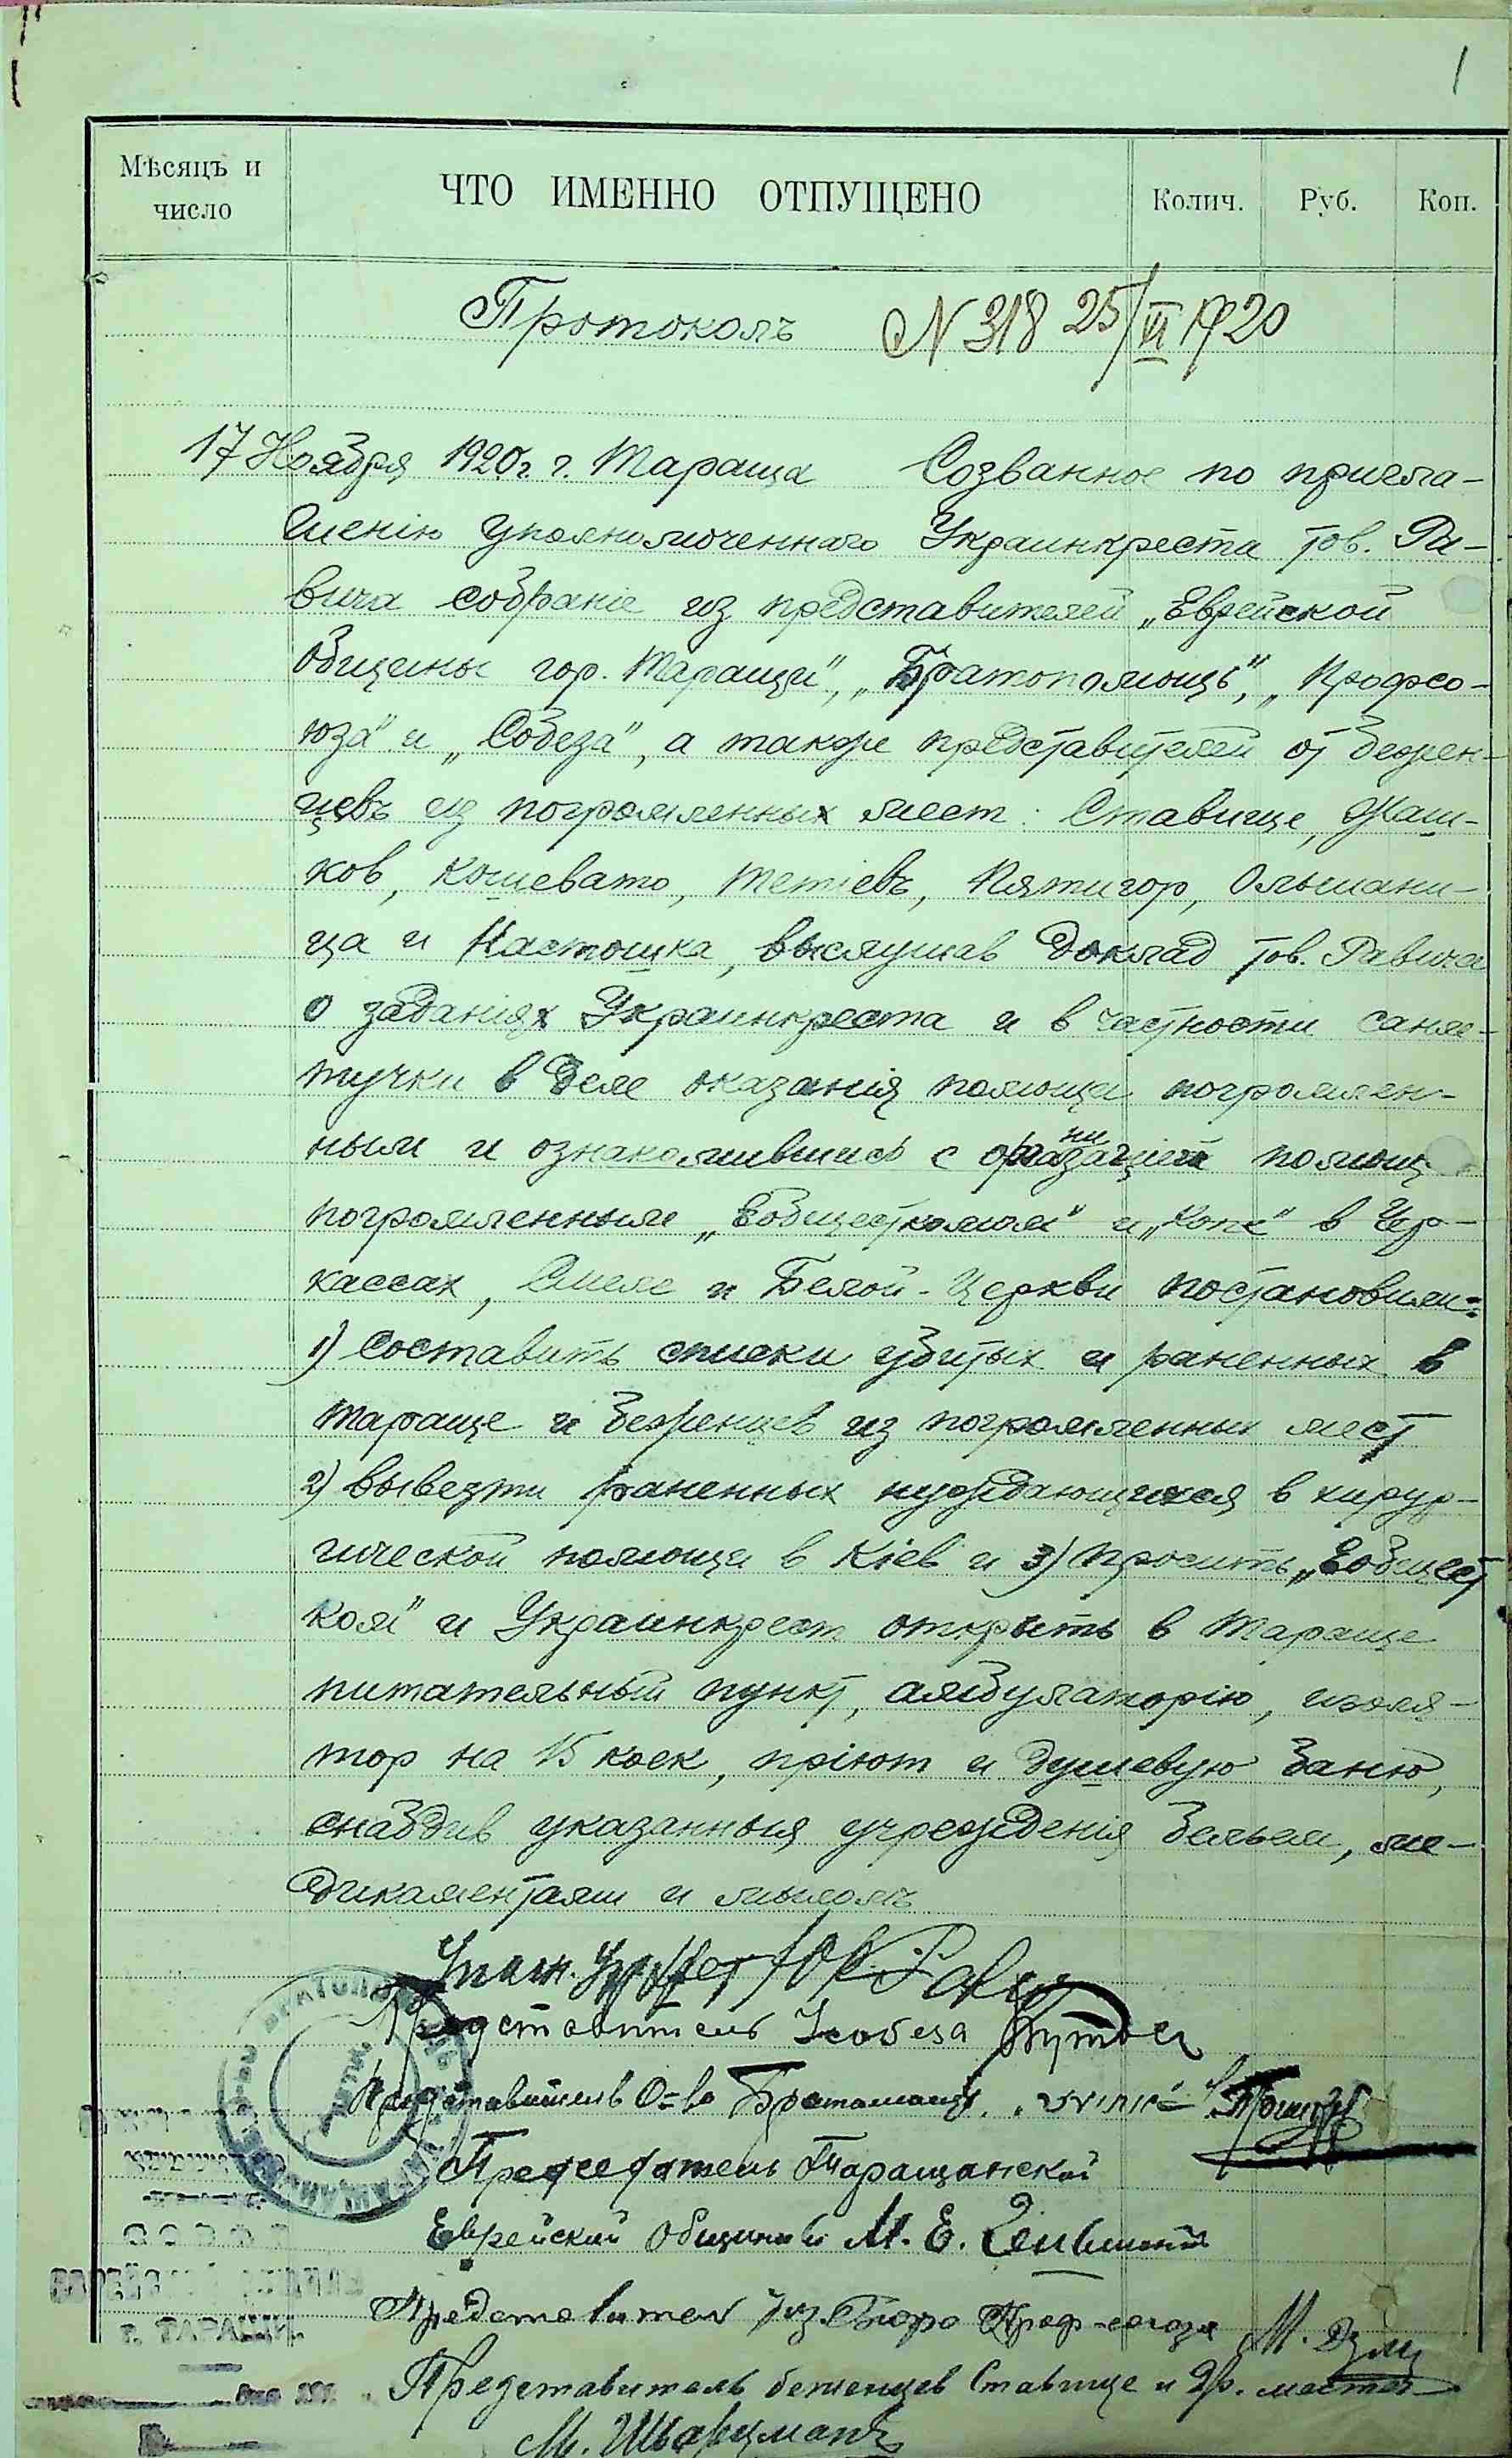 Мѣсяцъ и число
ЧТО ИМЕННО ОТПУЩЕНО
Колич.
Руб.
Коп.
Протоколъ N 318 25/XI 1920
17 Ноября 1920 г. г. Тараща Созванное по пригла-
шенію уполномоченнаго Украинкреста тов. Ра-
вича собраніе из представителей „Еврейской
Общины гор. Таращи", „Братопомощь", „Профсо-
юза" и „Собеза", а также представителей от бежен-
цевъ из погромленных мест: Ставище, Жаш-
ков, Кошевато, Тетіевъ, Пятигор, Ольшани-
ца и Настошка, выслушав доклад тов. Равича
о заданіях Украинкреста и в частности санле-
тучки в деле оказанія помощи погромлен-
ным и ознакомившись с организаціей помощи
погромленным „Евобщесткомом" и „Копе" в Чер-
кассах, Смеле и Белой-Церкви постановили:
1) Составить списки убитых и раненных в
Тараще и беженцев из погромленных мест
2) вывезти раненных нуждающихся в хирур-
гической помощи в Кіев и 3) просить „Евобщест
ком" и Украинкрест открыть в Тараще
питательный пункт, амбулаторію, изоля-
тор на 15 коек, пріют и душевую баню,
снабдив указанныя учрежденія бельем, ме-
дикаментами и мыломъ
Представитель Усобеза
Представитель О-ва Братопомощь
Председатель Таращанской
Еврейской Общины М. Е.
Представител Уоз. Бюро Проф-союза М.
Представитель беженцев Ставище и др. мест
М. Шварцманъ
ЕВРЕЙСКОЙ ОБЩИНЫ
г. ТАРАЩИ.